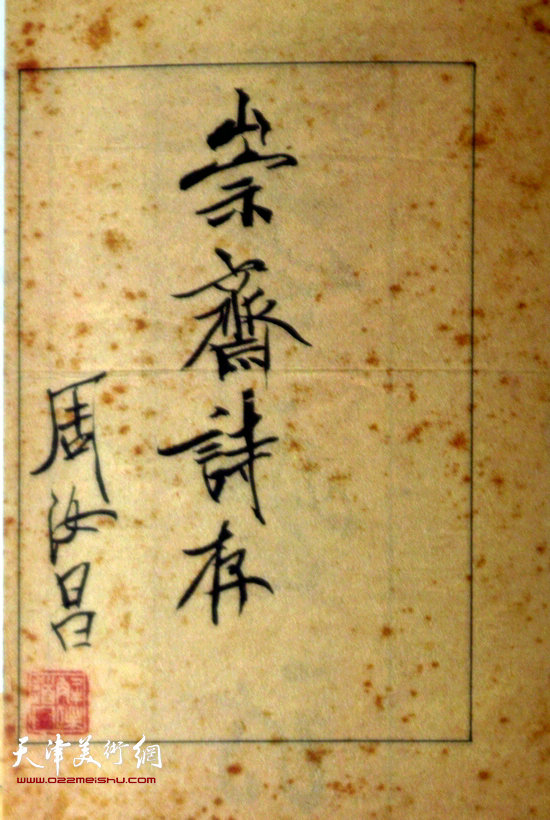 崇齋詩存
周汝昌
天津美術網
www.022meishu.com